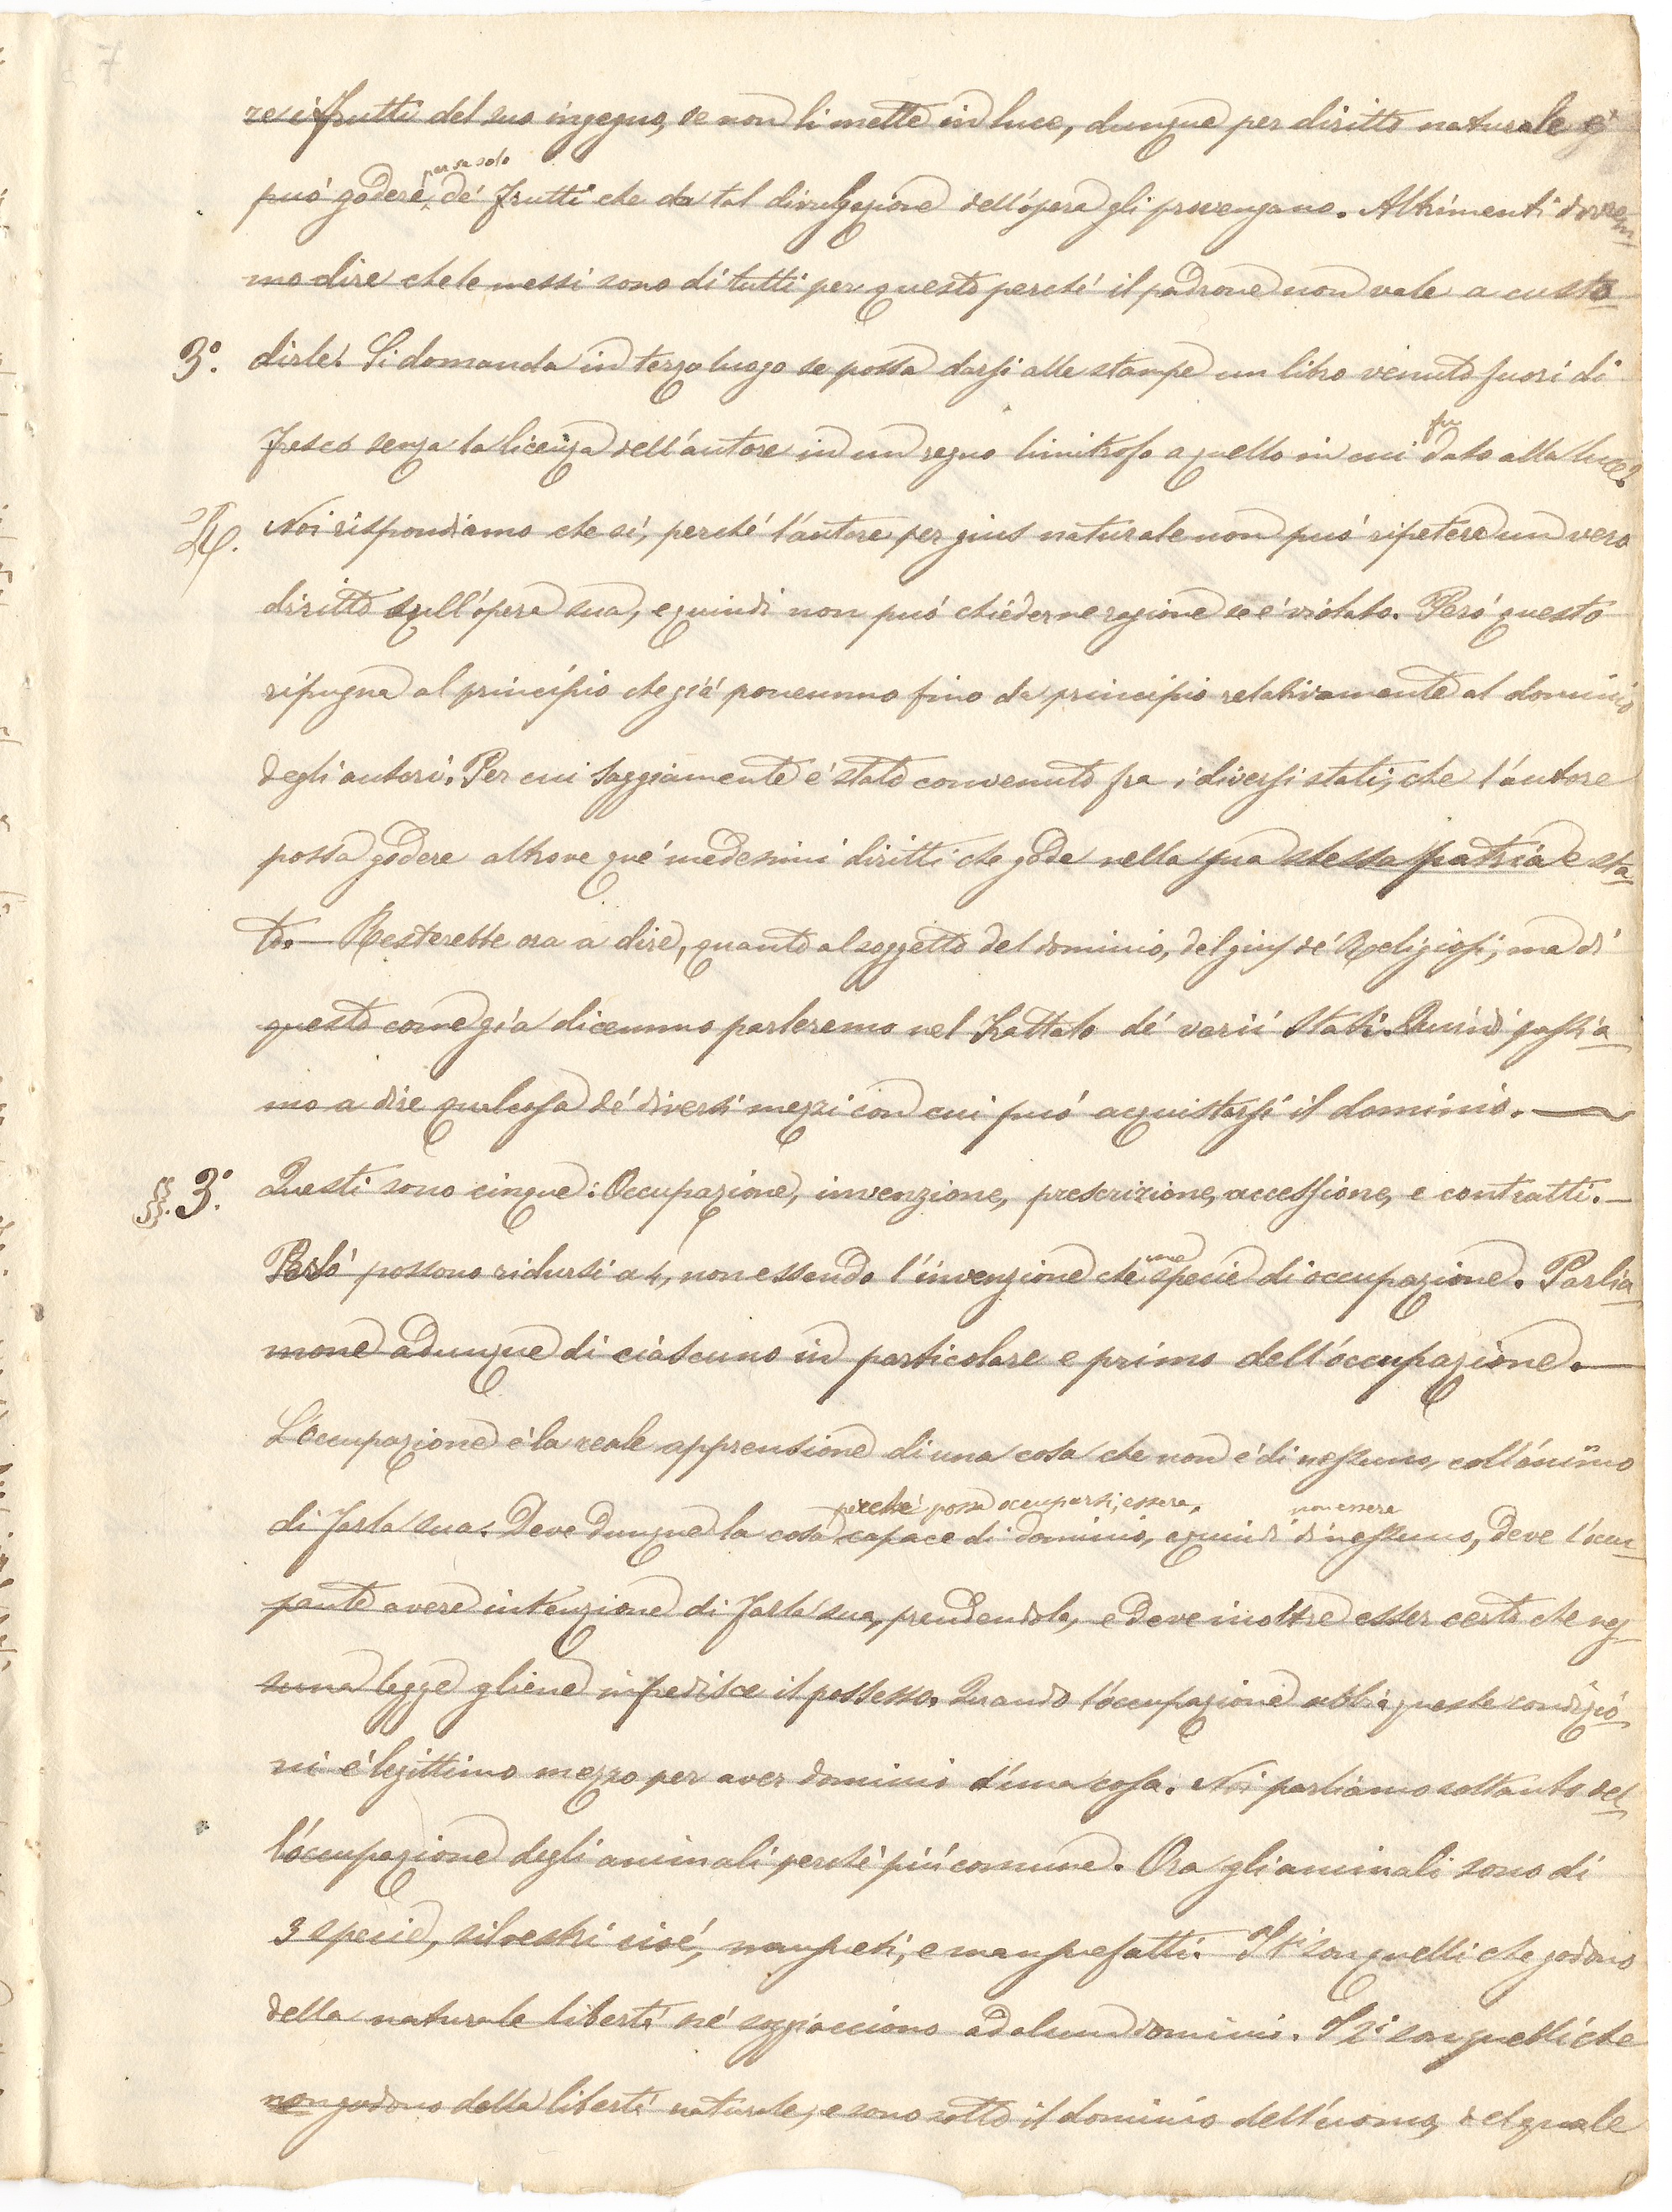 7
re i frutti del suo ingegno, se non li mette in luce, dunque per diritto naturale ei
per se solo
può godere, de' frutti che da tal divulgazione dell'opera gli provengano. Altrimenti dovrem-
mo dire che le messi sono di tutti per questo perché il padrone non vale a custo-
3°. dirle. Si domanda in terzo luogo se possa darsi alle stampe un libro venuto fuori di
fu
fresco senza la licenza dell'autore in un regno limitrofo a quello in cui dato alla luce?
R. Noi rispondiamo che sì, perché l'autore per gius naturale non può ripetere un vero
diritto sull'opera sua, e quindi non può chiederne ragione se è violato. Però questo
ripugna al principio che già ponemmo fino da principio relativamente al dominio
degli autori. Per cui saggiamente è stato convenuto fra i diversi stati, che l'autore
possa godere altrove que' medesimi diritti che gode nella sua stessa patria e sta-
to.— Resterebbe ora a dire, quanto al soggetto del dominio, del gius de' Religiosi; ma di
questo come già dicemmo parleremo nel Trattato de' varii Stati. Quindi passia-
mo a dire qualcosa de' diversi mezzi con cui può acquistarsi il dominio.—
§. 3°. Questi sono cinque: Occupazione, invenzione, prescrizione, accessione, e contratti.—
una
Però possono ridursi a 4, non essendo l'invenzione che specie di occupazione. Parlia-
mone adunque di ciascuno in particolare e primo dell'occupazione.—
L'Occupazione è la reale apprensione di una cosa che non è di nessuno, coll'animo
perché possa occuparsi, essere, non essere
di farla sua. Deve dunque la cosa capace di dominio, e quindi di nessuno, deve l'occu-
pante avere intenzione di farla sua, prendendola, e deve inoltre esser certo che nes-
suna legge gliene impedisce il possesso. Quando l'occupazione abbia queste condizio-
ni è legittimo mezzo per aver dominio d'una cosa. Noi parliamo soltanto del-
l'occupazione degli animali perché più comune. Ora gli animali sono di
3 specie, silvestri cioè, mansueti, e mansuefatti. I 1i son quelli che godono
della naturale libertà né soggiacciono ad alcun dominio. I 2i son quelli che
non godono della libertà naturale, e sono sotto il dominio dell'uomo, del quale